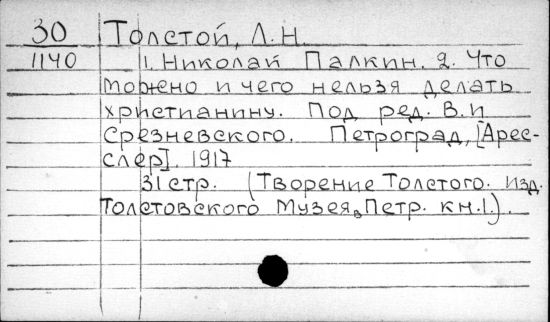 30 Толстой, Л. Н.
1140 1. Николай Палкин. 2. Что
можно и чего нельзя делать
христианину. Под ред. В. И
Срезневского. Петроград, [Арес-
слер]. 1917
31 стр. (Творение Толстого. Изд.
Толстовского Музея в Петр. кн.1.).